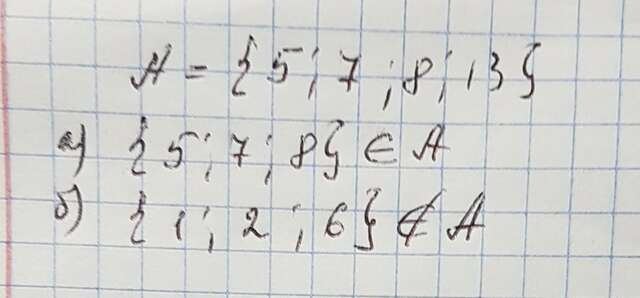 A = {5; 7; 8; 13}
а) {5; 7; 8} ∈ A
б) {1; 2; 6} ∉ A